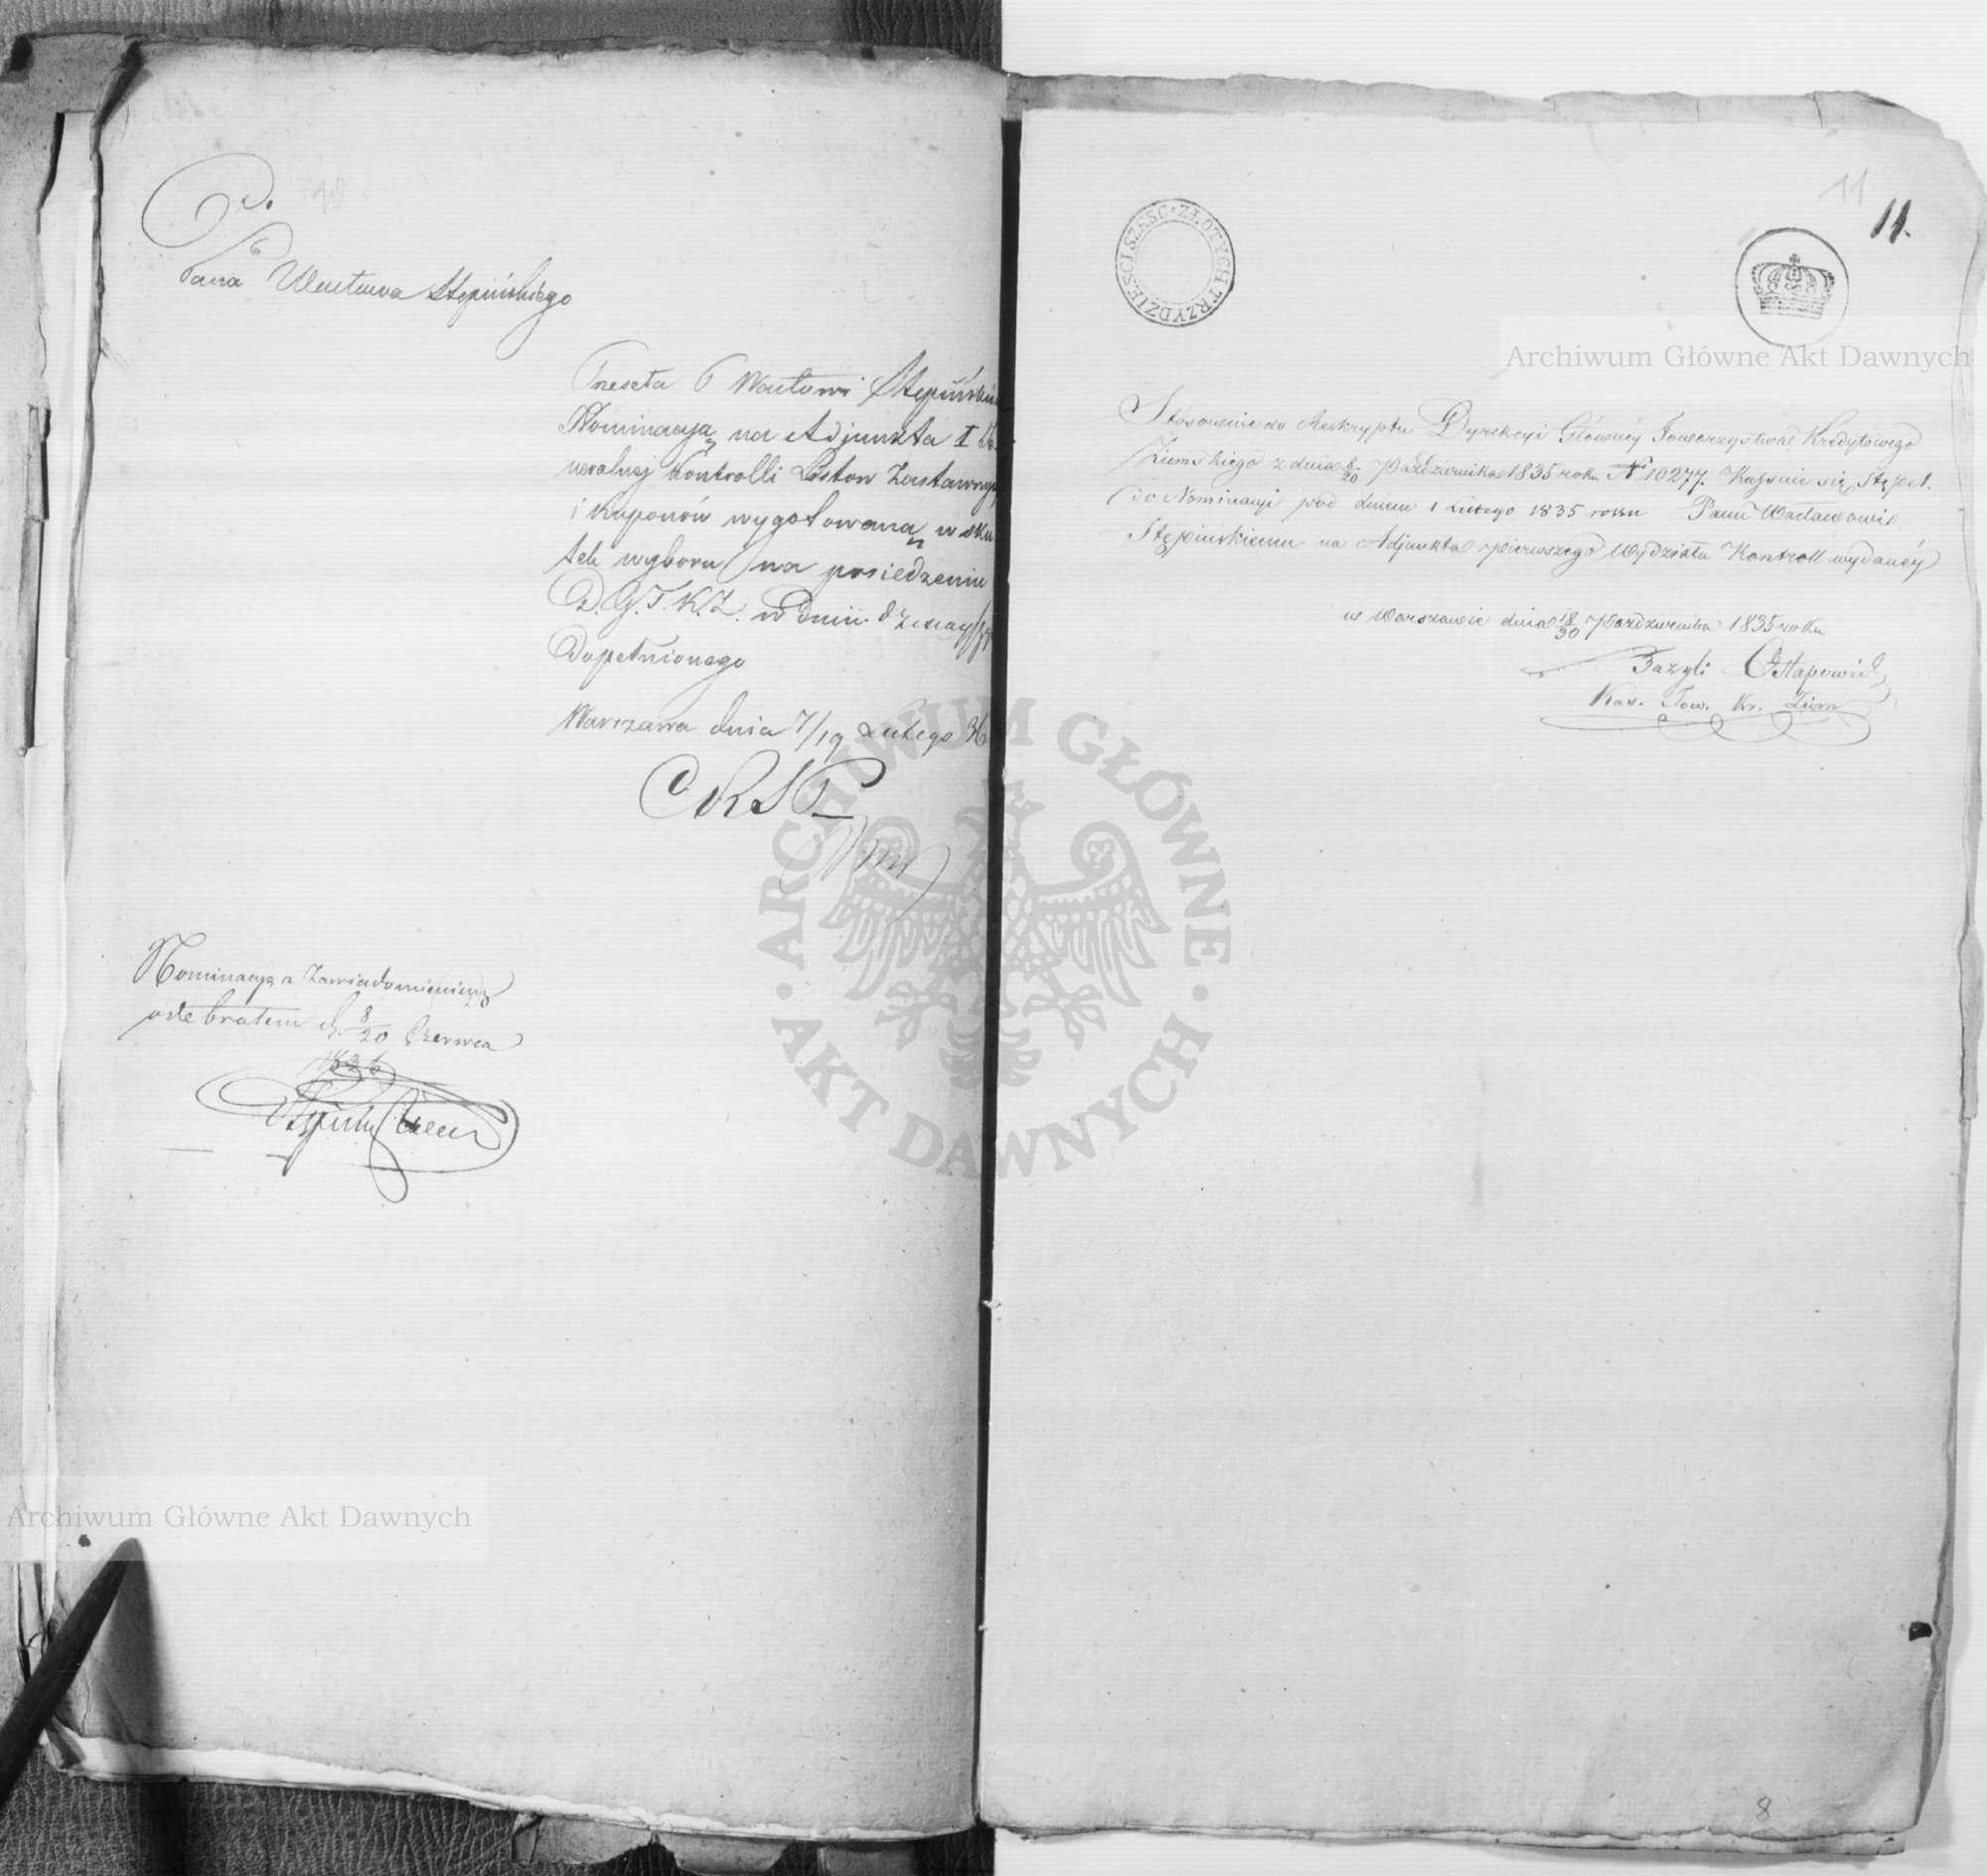 10
Do
Pana Wacława Stępińskiego
Przesyła P Wacławi Stępińskie
Nominacyą na Adjunkta I
neralnej Kontrolli Listow Zastawny
i Kuponów wygotowaną w sku
tek wyboru na posiedzeniu
D. G. T. K. Z. w Dniu dzisiay
dopełnionego
Warszawa dnia 7/19 Lutego 36
Nominacyą a Zawiadomieniem
odebrałem d. 8/20 Czerwca
1836
11
11.
TRZYDZIEŚCI SZEŚĆ · ZŁOTYCH
Stosownie do Reskryptu Dyrekcyi Głównéy Towarzystwa Kredytowego
Ziemskiego z dnia 8/20 Października 1835 roku N 10277. Kassuie się Stępel.
do Nominacyi pod dniem 1 Lutego 1835 roku Panu Wacławowi
Stępinskiemu na Adjunkta pierwszego Wydziału Kontroll wydanéy
w Warszawie dnia 18/30 Października 1835 roku
Bazyli Ostapowicz
Kas. Tow. Kr. Ziem
8
Archiwum Główne Akt Dawnych
ARCHIWUM GŁÓWNE · AKT DAWNYCH ·
Archiwum Główne Akt Dawnych